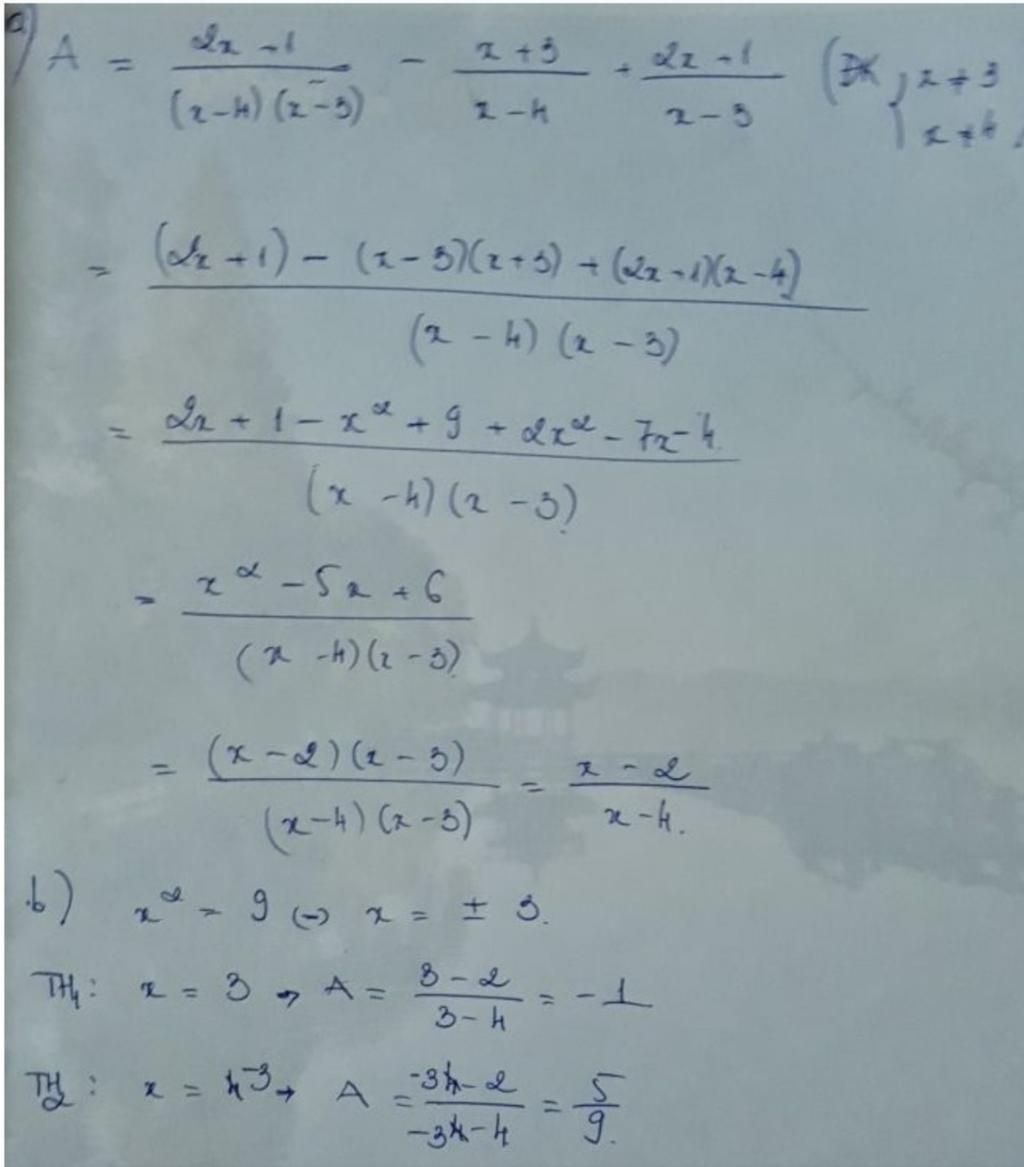 a) A = (2x + 1)/((x-4)(x-3)) - (x+3)/(x-4) + (2x+1)/(x-3) (ĐK { x ≠ 3
x ≠ 4
= ((2x+1) - (x-3)(x+3) + (2x+1)(x-4))/((x-4)(x-3))
= (2x + 1 - x² + 9 + 2x² - 7x - 4)/((x-4)(x-3))
= (x² - 5x + 6)/((x-4)(x-3))
= ((x-2)(x-3))/((x-4)(x-3)) = (x-2)/(x-4).
b) x² = 9 ⇔ x = ± 3.
TH1: x = 3 → A = (3-2)/(3-4) = -1
TH2: x = -3 → A = (-3-2)/(-3-4) = 5/9.